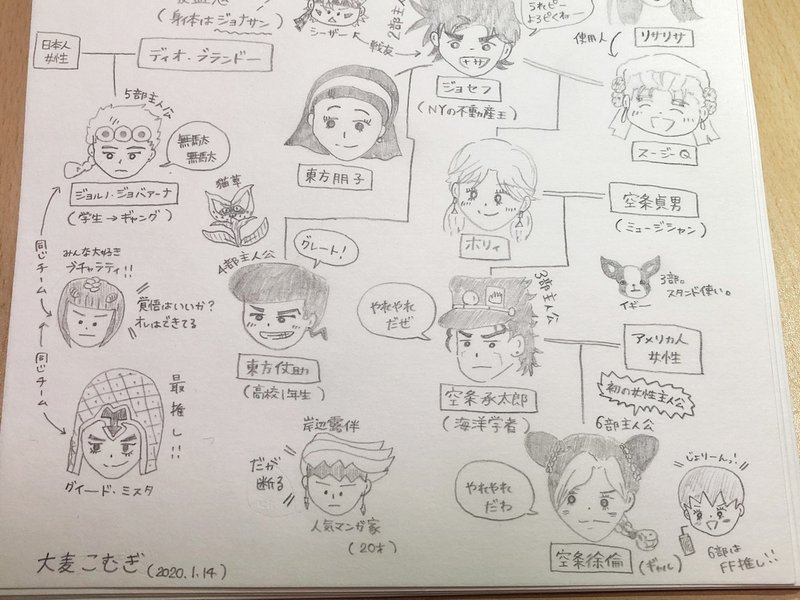 (身体はジョナサン)
シーザー
戦友
2部主人公
うれピー
よろピくねー
使用人
リサリサ
日本人
女性
ディオ・ブランドー
ジョセフ
(NYの不動産王)
5部主人公
無駄
無駄
東方朋子
スージーQ
ジョルノ・ジョバァーナ
(学生→ギャング)
猫草
ホリィ
空条貞男
(ミュージシャン)
同じチーム
みんな大好き
ブチャラティ!!
覚悟はいいか?
オレはできてる
4部主人公
グレート!
やれやれ
だぜ
3部主人公
イギー
3部。
スタンド使い。
アメリカ人
女性
東方仗助
(高校1年生)
空条承太郎
(海洋学者)
初の女性主人公
6部主人公
同じチーム
最推し!!
グイード・ミスタ
岸辺露伴
だが
断る
人気マンガ家
(20才)
やれやれ
だわ
空条徐倫
(ギャル)
じょりーんっ!
6部は
FF推し!!
大麦こむぎ(2020.1.14)